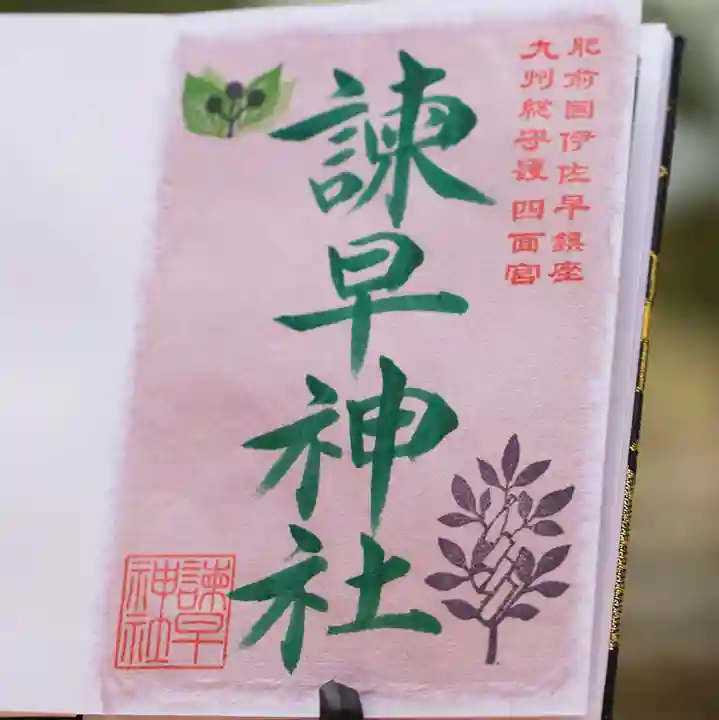 肥前国伊佐早鎮座
九州総守護 四面宮
諫早神社
諫早
神社